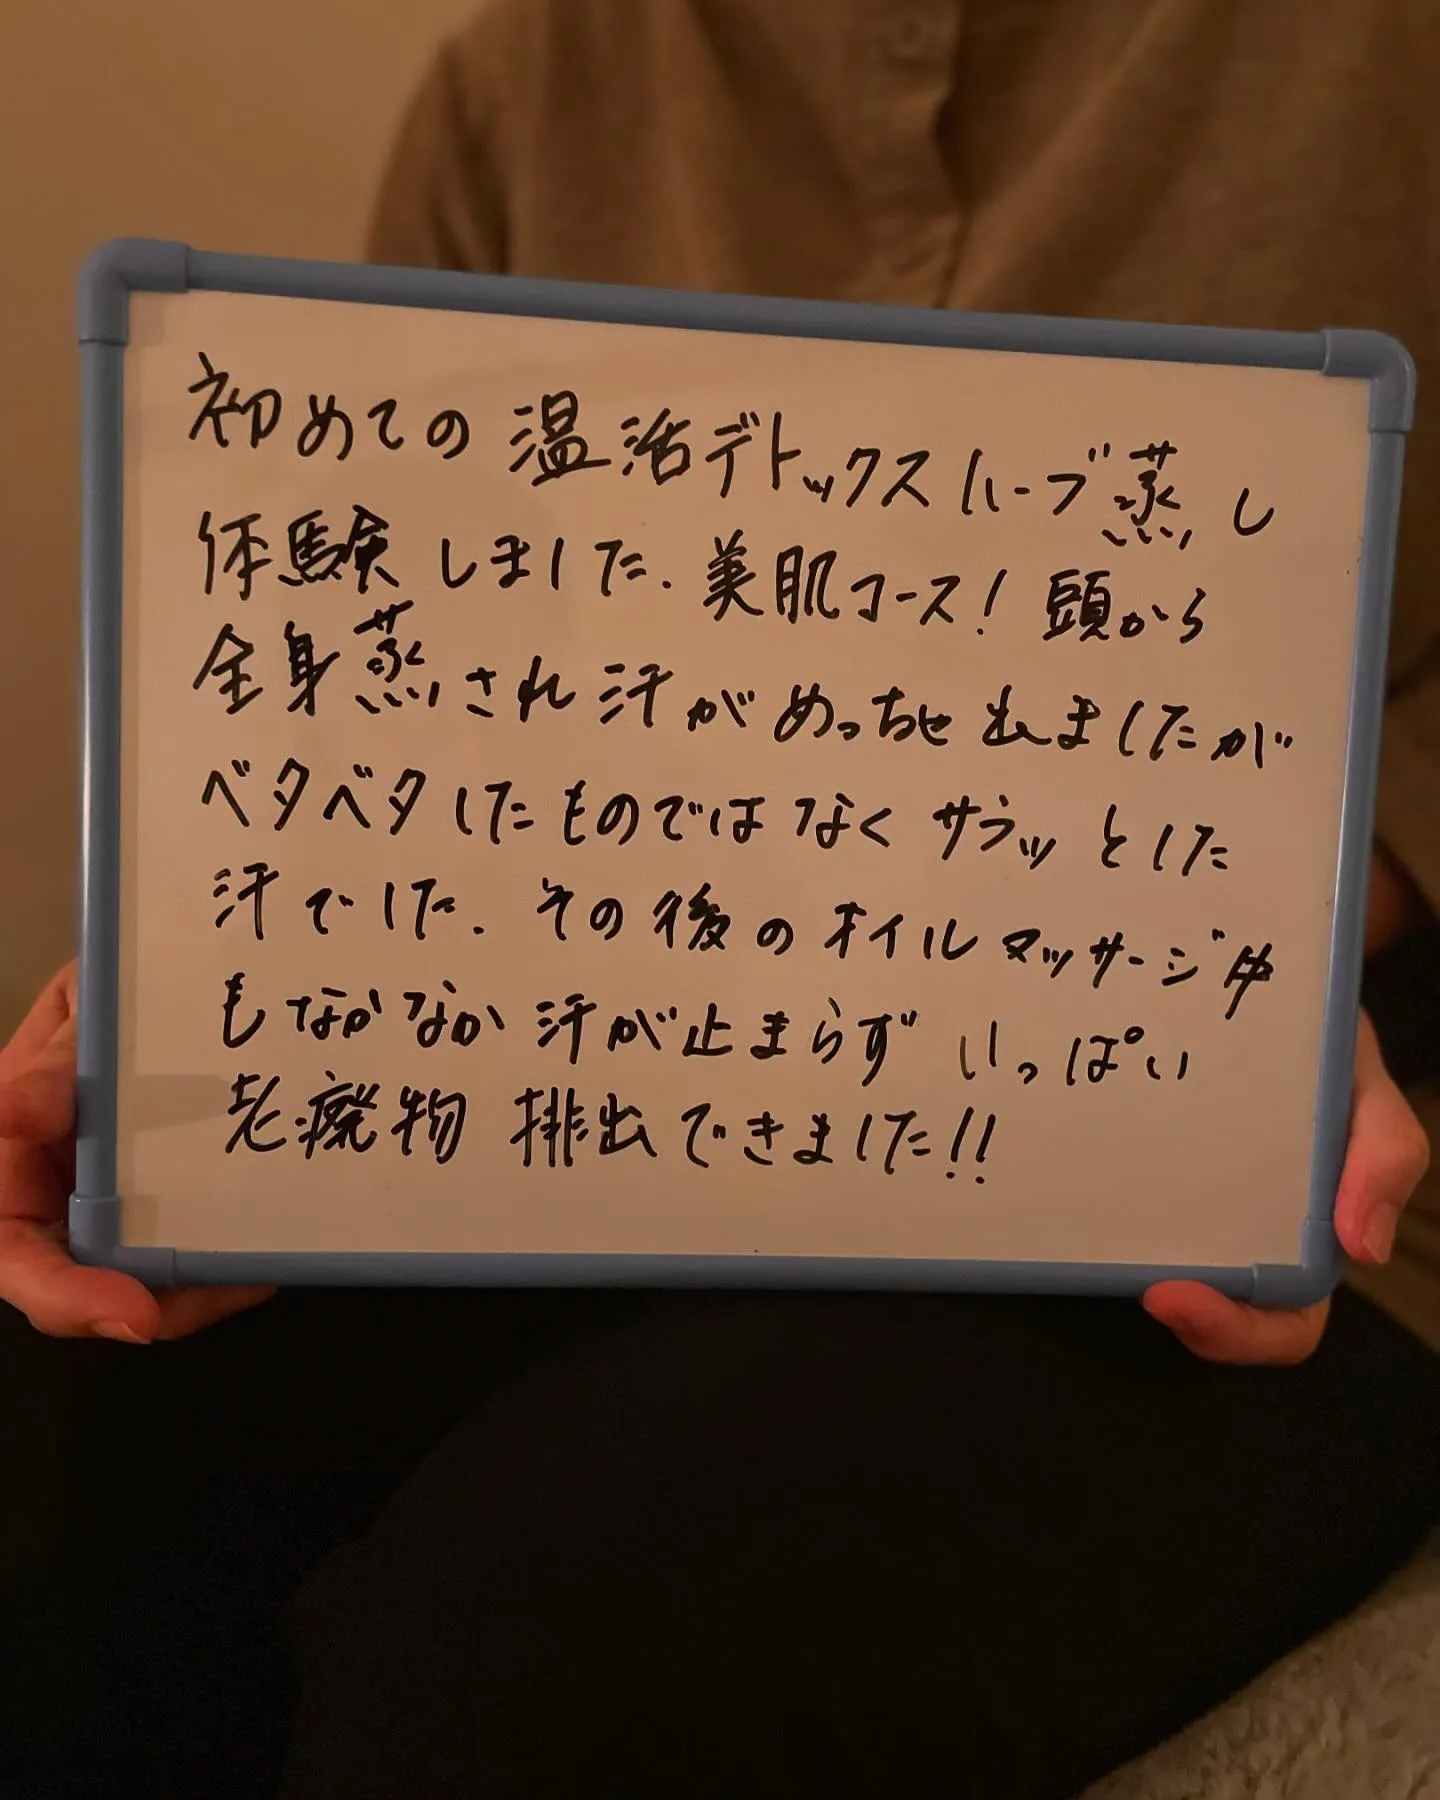 初めての温活デトックスハーブ蒸し
体験しました.美肌コース!頭から
全身蒸され汗がめっちゃ出ましたが
ベタベタしたものではなくサラッとした
汗でした.その後のオイルマッサージ中
もなかなか汗が止まらずいっぱい
老廃物排出できました!!